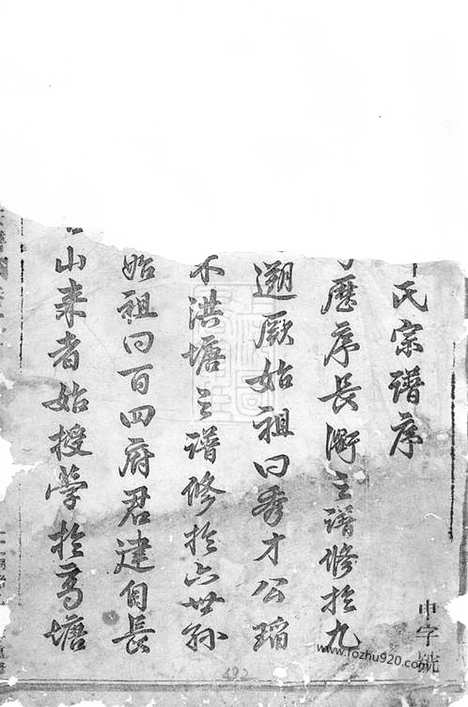 氏宗譜序
歷序長衖之譜修於九
遡厥始祖曰秀才公瑫
洪塘之譜修於六世孫
始祖曰百四府君建自長
山來者始授學於高塘
申字號
www.fozhu920.com
492